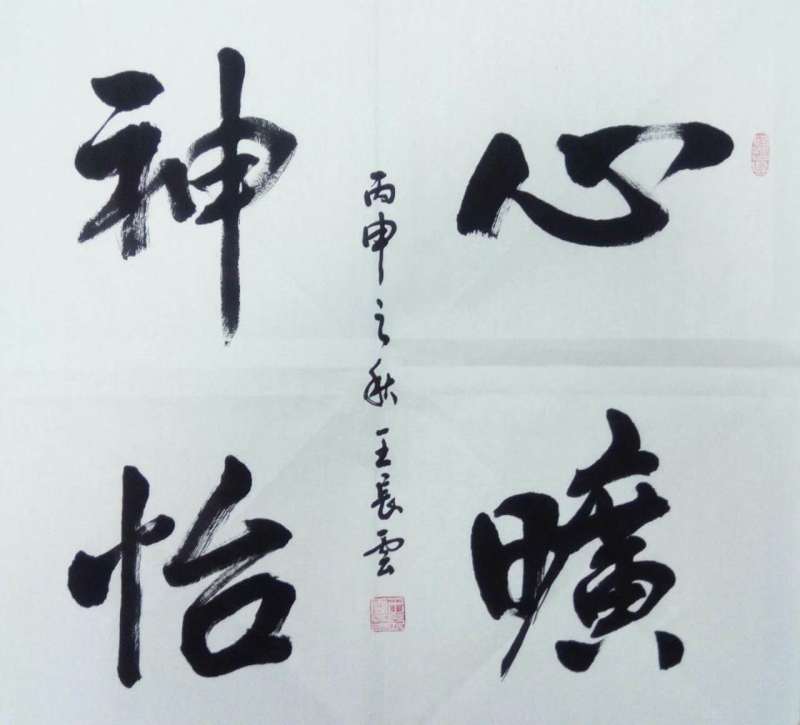 心曠
神怡
丙申之秋王長雲